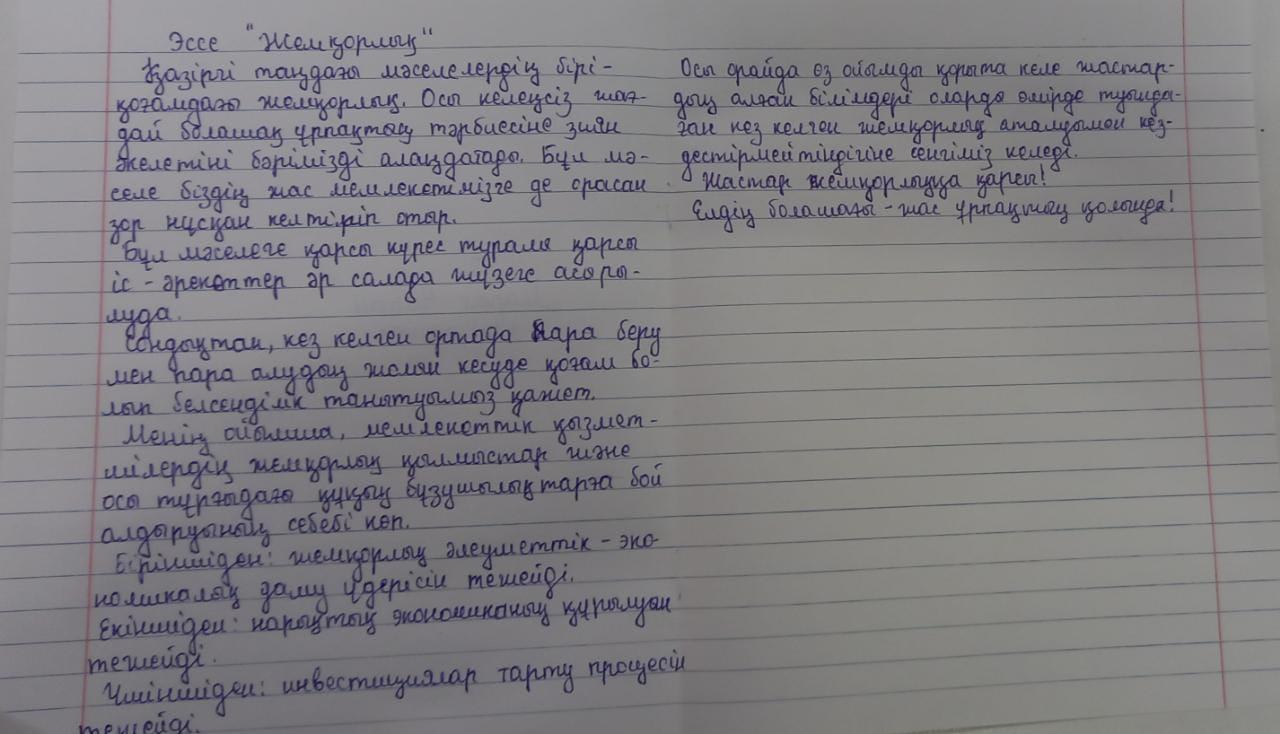 Эссе "Жемқорлық"
Қазіргі таңдағы мәселелердің бірі-
қоғамдағы жемқорлық. Осы келеңсіз жағ-
дай болашақ ұрпақтың тәрбиесіне зиян
әкелетіні бәрімізді алаңдатады. Бұл мә-
селе біздің жас мемлекетімізге де орасан
зор нұсқан келтіріп отыр.
Бұл мәселеге қарсы күрес туралы қарсы
іс-әрекеттер әр салада жүзеге асыры-
луда.
Сондықтан, кез келген ортада пара беру
мен пара алудың жолын кесуде қоғам бо-
лып белсенділік танытуымыз қажет.
Менің ойымша, мемлекеттік қызмет-
шілердің жемқорлық қылмыстар және
осы тұрғыдағы құқық бұзушылықтарға бой
алдыруының себебі көп.
Біріншіден: жемқорлық әлеуметтік-эко-
номикалық даму үдерісін тежейді.
Екіншіден: нарықтық экономиканың құрылуын
тежейді.
Үшіншіден: инвестициялар тарту процесін
тежейді.
Осы орайда өз ойымды қорыта келе жастар-
дың алған білімдері оларды өмірде туында-
ған кез келген жемқорлық аталуымен кез-
дестірмейтіндігіне сенгіміз келеді.
Жастар жемқорлыққа қарсы!
Елдің болашағы-жас ұрпақтың қолында!